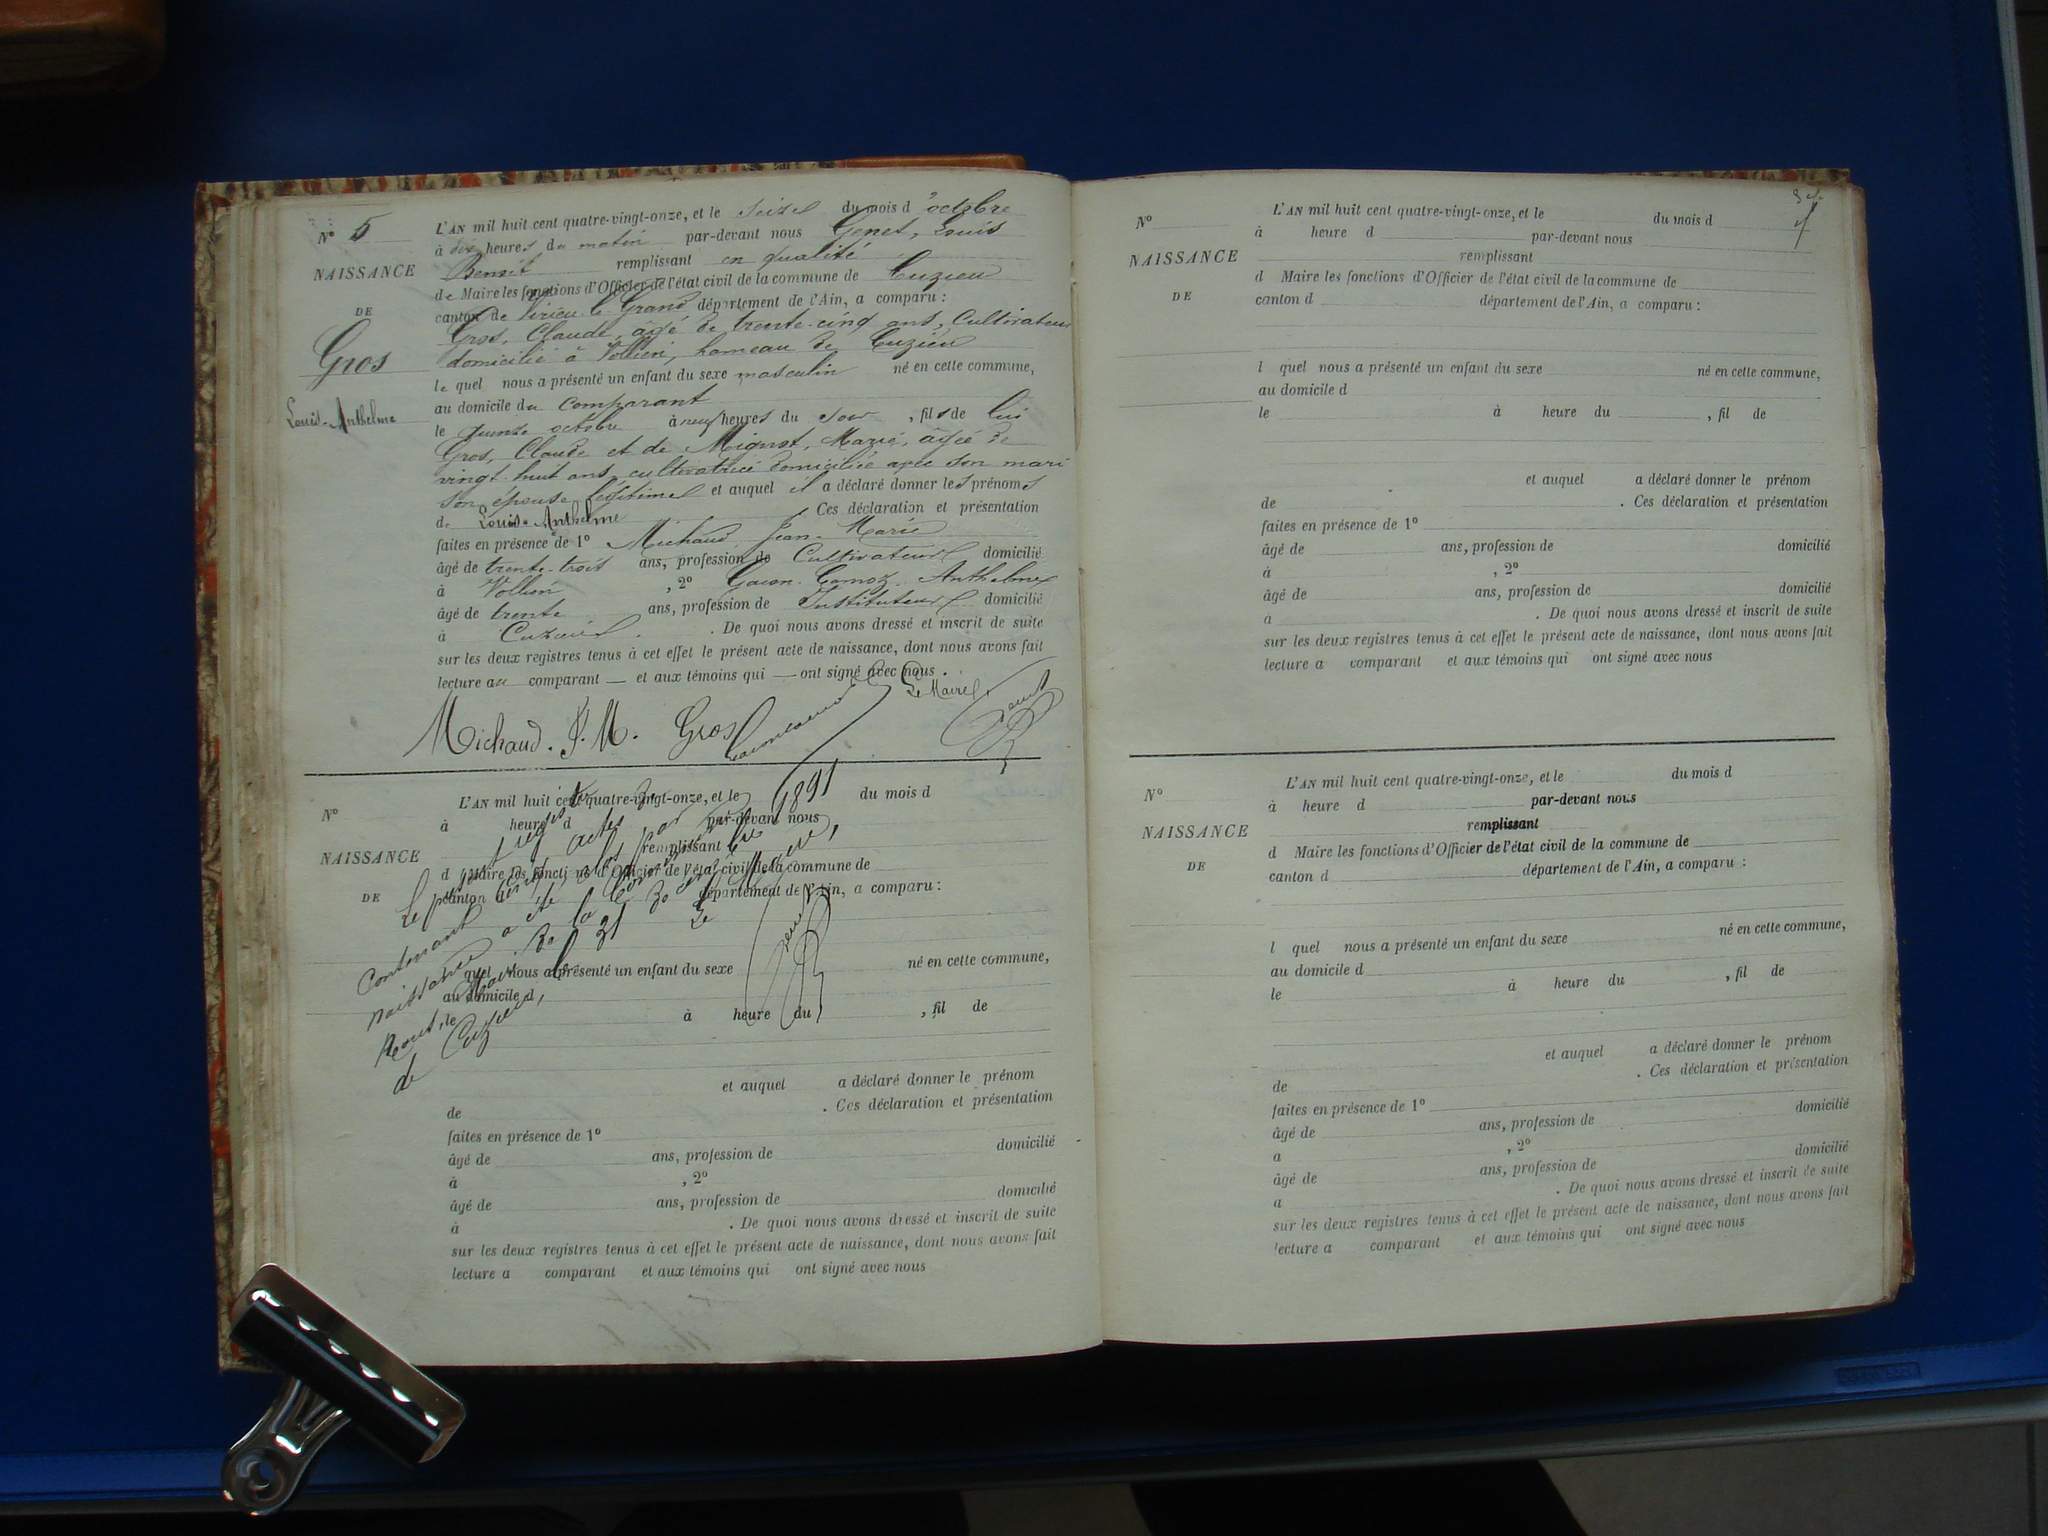 N° 5
NAISSANCE
DE
Gros
Louis-Anthelme
L'AN mil huit cent quatre-vingt-onze, et le seize du mois d'octobre
à dix heures du matin par-devant nous Genet, Louis
Benoit remplissant en qualité
de Maire les fonctions d'Officier de l'état civil de la commune de Cuzieu
canton de Virieu-le-Grand département de l'Ain, a comparu :
Gros, Claude, âgé de trente-cinq ans, Cultivateur
domicilié à Vollien, hameau de Cuzieu
lequel nous a présenté un enfant du sexe masculin né en cette commune,
au domicile du comparant
le quinze octobre à neuf heures du soir, fils de lui
Gros, Claude et de Mignot, Marie, âgée de
vingt-huit ans, cultivatrice domiciliée avec son mari
son épouse légitime et auquel il a déclaré donner les prénoms
de Louis-Anthelme. Ces déclaration et présentation
faites en présence de 1° Michaud Jean-Marie
âgé de trente-trois ans, profession de Cultivateur domicilié
à Vollien, 2° Anthelme
âgé de trente ans, profession de Instituteur domicilié
à Cuzieu. De quoi nous avons dressé et inscrit de suite
sur les deux registres tenus à cet effet le présent acte de naissance, dont nous avons fait
lecture au comparant — et aux témoins qui — ont signé avec nous.
Le Maire
Michaud. J. M. Gros Genet
N°
NAISSANCE
DE
L'AN mil huit cent quatre-vingt-onze, et le du mois d
à heure d par-devant nous
remplissant
d Maire les fonctions d'Officier de l'état civil de la commune de
canton d département de l'Ain, a comparu :
l quel nous a présenté un enfant du sexe né en cette commune,
au domicile d
le à heure du , fil de
et auquel a déclaré donner le prénom
de . Ces déclaration et présentation
faites en présence de 1°
âgé de ans, profession de domicilié
à , 2°
âgé de ans, profession de domicilié
à . De quoi nous avons dressé et inscrit de suite
sur les deux registres tenus à cet effet le présent acte de naissance, dont nous avons fait
lecture a comparant et aux témoins qui ont signé avec nous
Le présent registre
contenant cinq actes de
naissance a été clos par
nous, Maire de la Commune
de Cuzieu, le 31 décembre 1891
Le Maire,
Genet
N°
NAISSANCE
DE
L'AN mil huit cent quatre-vingt-onze, et le du mois d
à heure d par-devant nous
remplissant
d Maire les fonctions d'Officier de l'état civil de la commune de
canton d département de l'Ain, a comparu :
l quel nous a présenté un enfant du sexe né en cette commune,
au domicile d
le à heure du , fil de
et auquel a déclaré donner le prénom
de . Ces déclaration et présentation
faites en présence de 1°
âgé de ans, profession de domicilié
à , 2°
âgé de ans, profession de domicilié
à . De quoi nous avons dressé et inscrit de suite
sur les deux registres tenus à cet effet le présent acte de naissance, dont nous avons fait
lecture a comparant et aux témoins qui ont signé avec nous
N°
NAISSANCE
DE
L'AN mil huit cent quatre-vingt-onze, et le du mois d
à heure d par-devant nous
remplissant
d Maire les fonctions d'Officier de l'état civil de la commune de
canton d département de l'Ain, a comparu :
l quel nous a présenté un enfant du sexe né en cette commune,
au domicile d
le à heure du , fil de
et auquel a déclaré donner le prénom
de . Ces déclaration et présentation
faites en présence de 1°
âgé de ans, profession de domicilié
a , 2°
âgé de ans, profession de domicilié
a . De quoi nous avons dressé et inscrit de suite
sur les deux registres tenus à cet effet le présent acte de naissance, dont nous avons fait
lecture a comparant et aux témoins qui ont signé avec nous